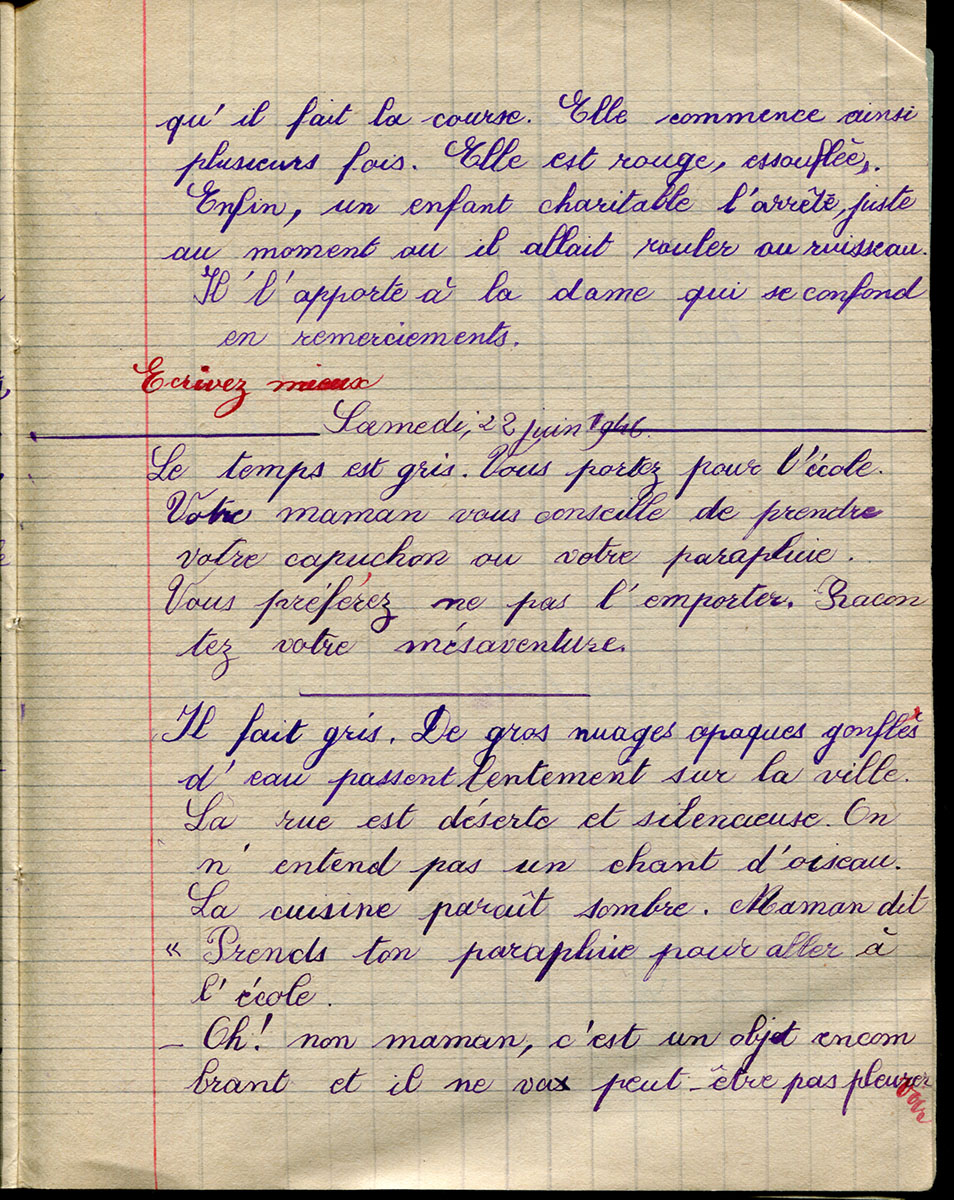 qu'il fait la course. Elle commence ainsi
plusieurs fois. Elle est rouge, essouflée,.
Enfin, un enfant charitable l'arrête, juste
au moment ou il allait rouler au ruisseau.
Il l'apporte à la dame qui se confond
en remerciements.
Ecrivez mieux
Samedi, 22 juin 1946.
Le temps est gris. Vous partez pour l'école.
Votre maman vous conseille de prendre
votre capuchon ou votre parapluie.
Vous préférez ne pas l'emporter. Racon
tez votre mésaventure.
Il fait gris. De gros nuages opaques gonflés
d'eau passent lentement sur la ville.
La rue est déserte et silencieuse. On
n'entend pas un chant d'oiseau.
La cuisine paraît sombre. Maman dit
« Prends ton parapluie pour aller à
l'école.
– Oh! non maman, c'est un objet encom
brant et il ne va peut-être pas pleurer
voir